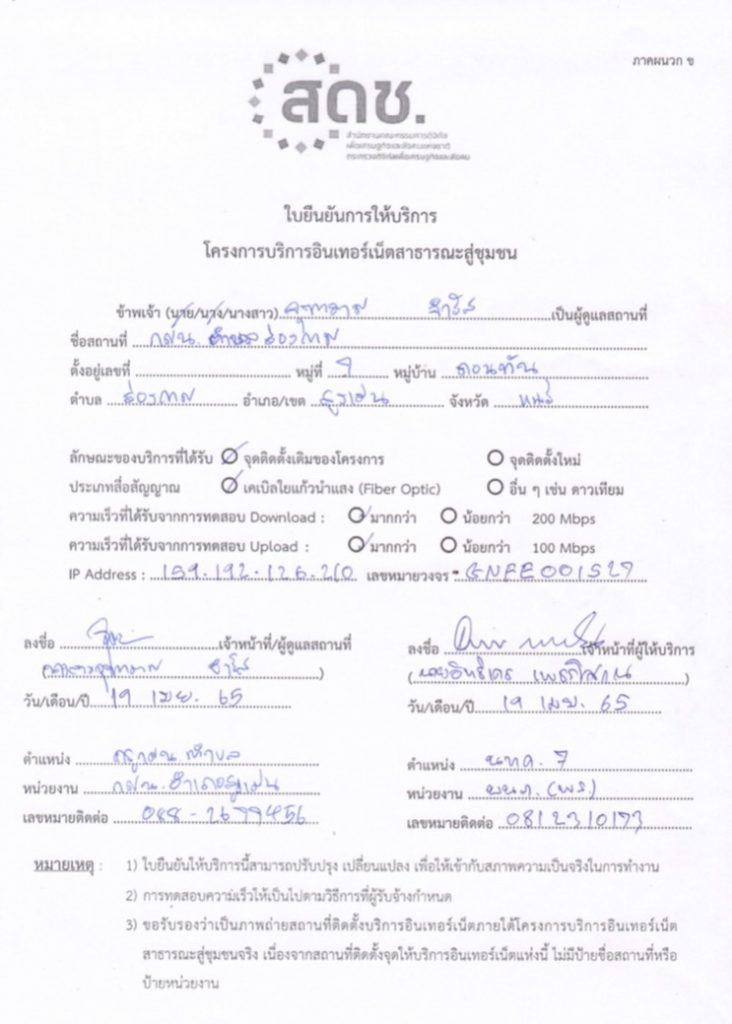 ภาคผนวก ข
สดช.
สำนักงานคณะกรรมการดิจิทัล
เพื่อเศรษฐกิจและสังคมแห่งชาติ
กระทรวงดิจิทัลเพื่อเศรษฐกิจและสังคม
ใบยืนยันการให้บริการ
โครงการบริการอินเทอร์เน็ตสาธารณะสู่ชุมชน
ข้าพเจ้า (นาย/นาง/นางสาว) เป็นผู้ดูแลสถานที่
ชื่อสถานที่ กศน. ตำบล
ตั้งอยู่เลขที่ หมู่ที่ หมู่บ้าน ดอนทัน
ตำบล อำเภอ/เขต จังหวัด
ลักษณะของบริการที่ได้รับ จุดติดตั้งเดิมของโครงการ จุดติดตั้งใหม่
ประเภทสื่อสัญญาณ เคเบิลใยแก้วนำแสง (Fiber Optic) อื่น ๆ เช่น ดาวเทียม
ความเร็วที่ได้รับจากการทดสอบ Download : มากกว่า น้อยกว่า 200 Mbps
ความเร็วที่ได้รับจากการทดสอบ Upload : มากกว่า น้อยกว่า 100 Mbps
IP Address : 159.192.126.210 เลขหมายวงจร
ลงชื่อ เจ้าหน้าที่/ผู้ดูแลสถานที่
วัน/เดือน/ปี 19 เมย. 65
ลงชื่อ เจ้าหน้าที่ผู้ให้บริการ
วัน/เดือน/ปี 19 เมย. 65
ตำแหน่ง ครูกศน.ตำบล
หน่วยงาน กศน.อำเภอ
เลขหมายติดต่อ
ตำแหน่ง
หน่วยงาน
เลขหมายติดต่อ
หมายเหตุ : 1) ใบยืนยันให้บริการนี้สามารถปรับปรุง เปลี่ยนแปลง เพื่อให้เข้ากับสภาพความเป็นจริงในการทำงาน
2) การทดสอบความเร็วให้เป็นไปตามวิธีการที่ผู้รับจ้างกำหนด
3) ขอรับรองว่าเป็นภาพถ่ายสถานที่ติดตั้งบริการอินเทอร์เน็ตภายใต้โครงการบริการอินเทอร์เน็ต
สาธารณะสู่ชุมชนจริง เนื่องจากสถานที่ติดตั้งจุดให้บริการอินเทอร์เน็ตแห่งนี้ ไม่มีป้ายชื่อสถานที่หรือ
ป้ายหน่วยงาน